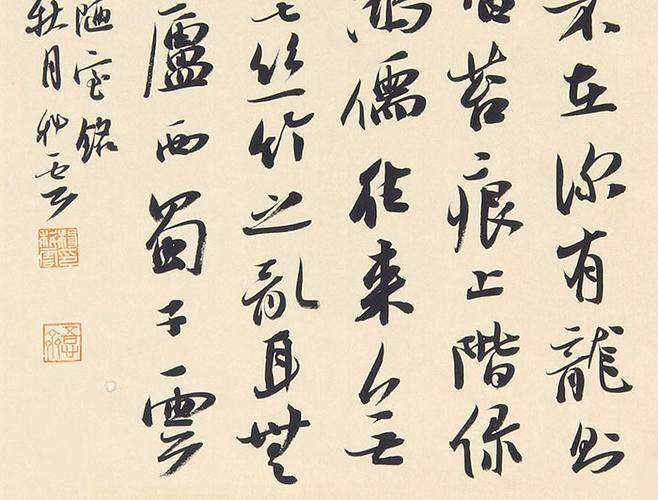 不在深有龍則
苔痕上階綠
鴻儒往來無
絲竹之亂耳無
廬西蜀子雲
陋室銘
月雲